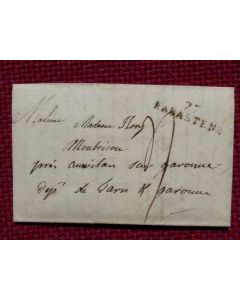 77
RABASTENS
Madame
Madame
Montbrison
près auvillar sur garonne
Dépt de Tarn & garonne